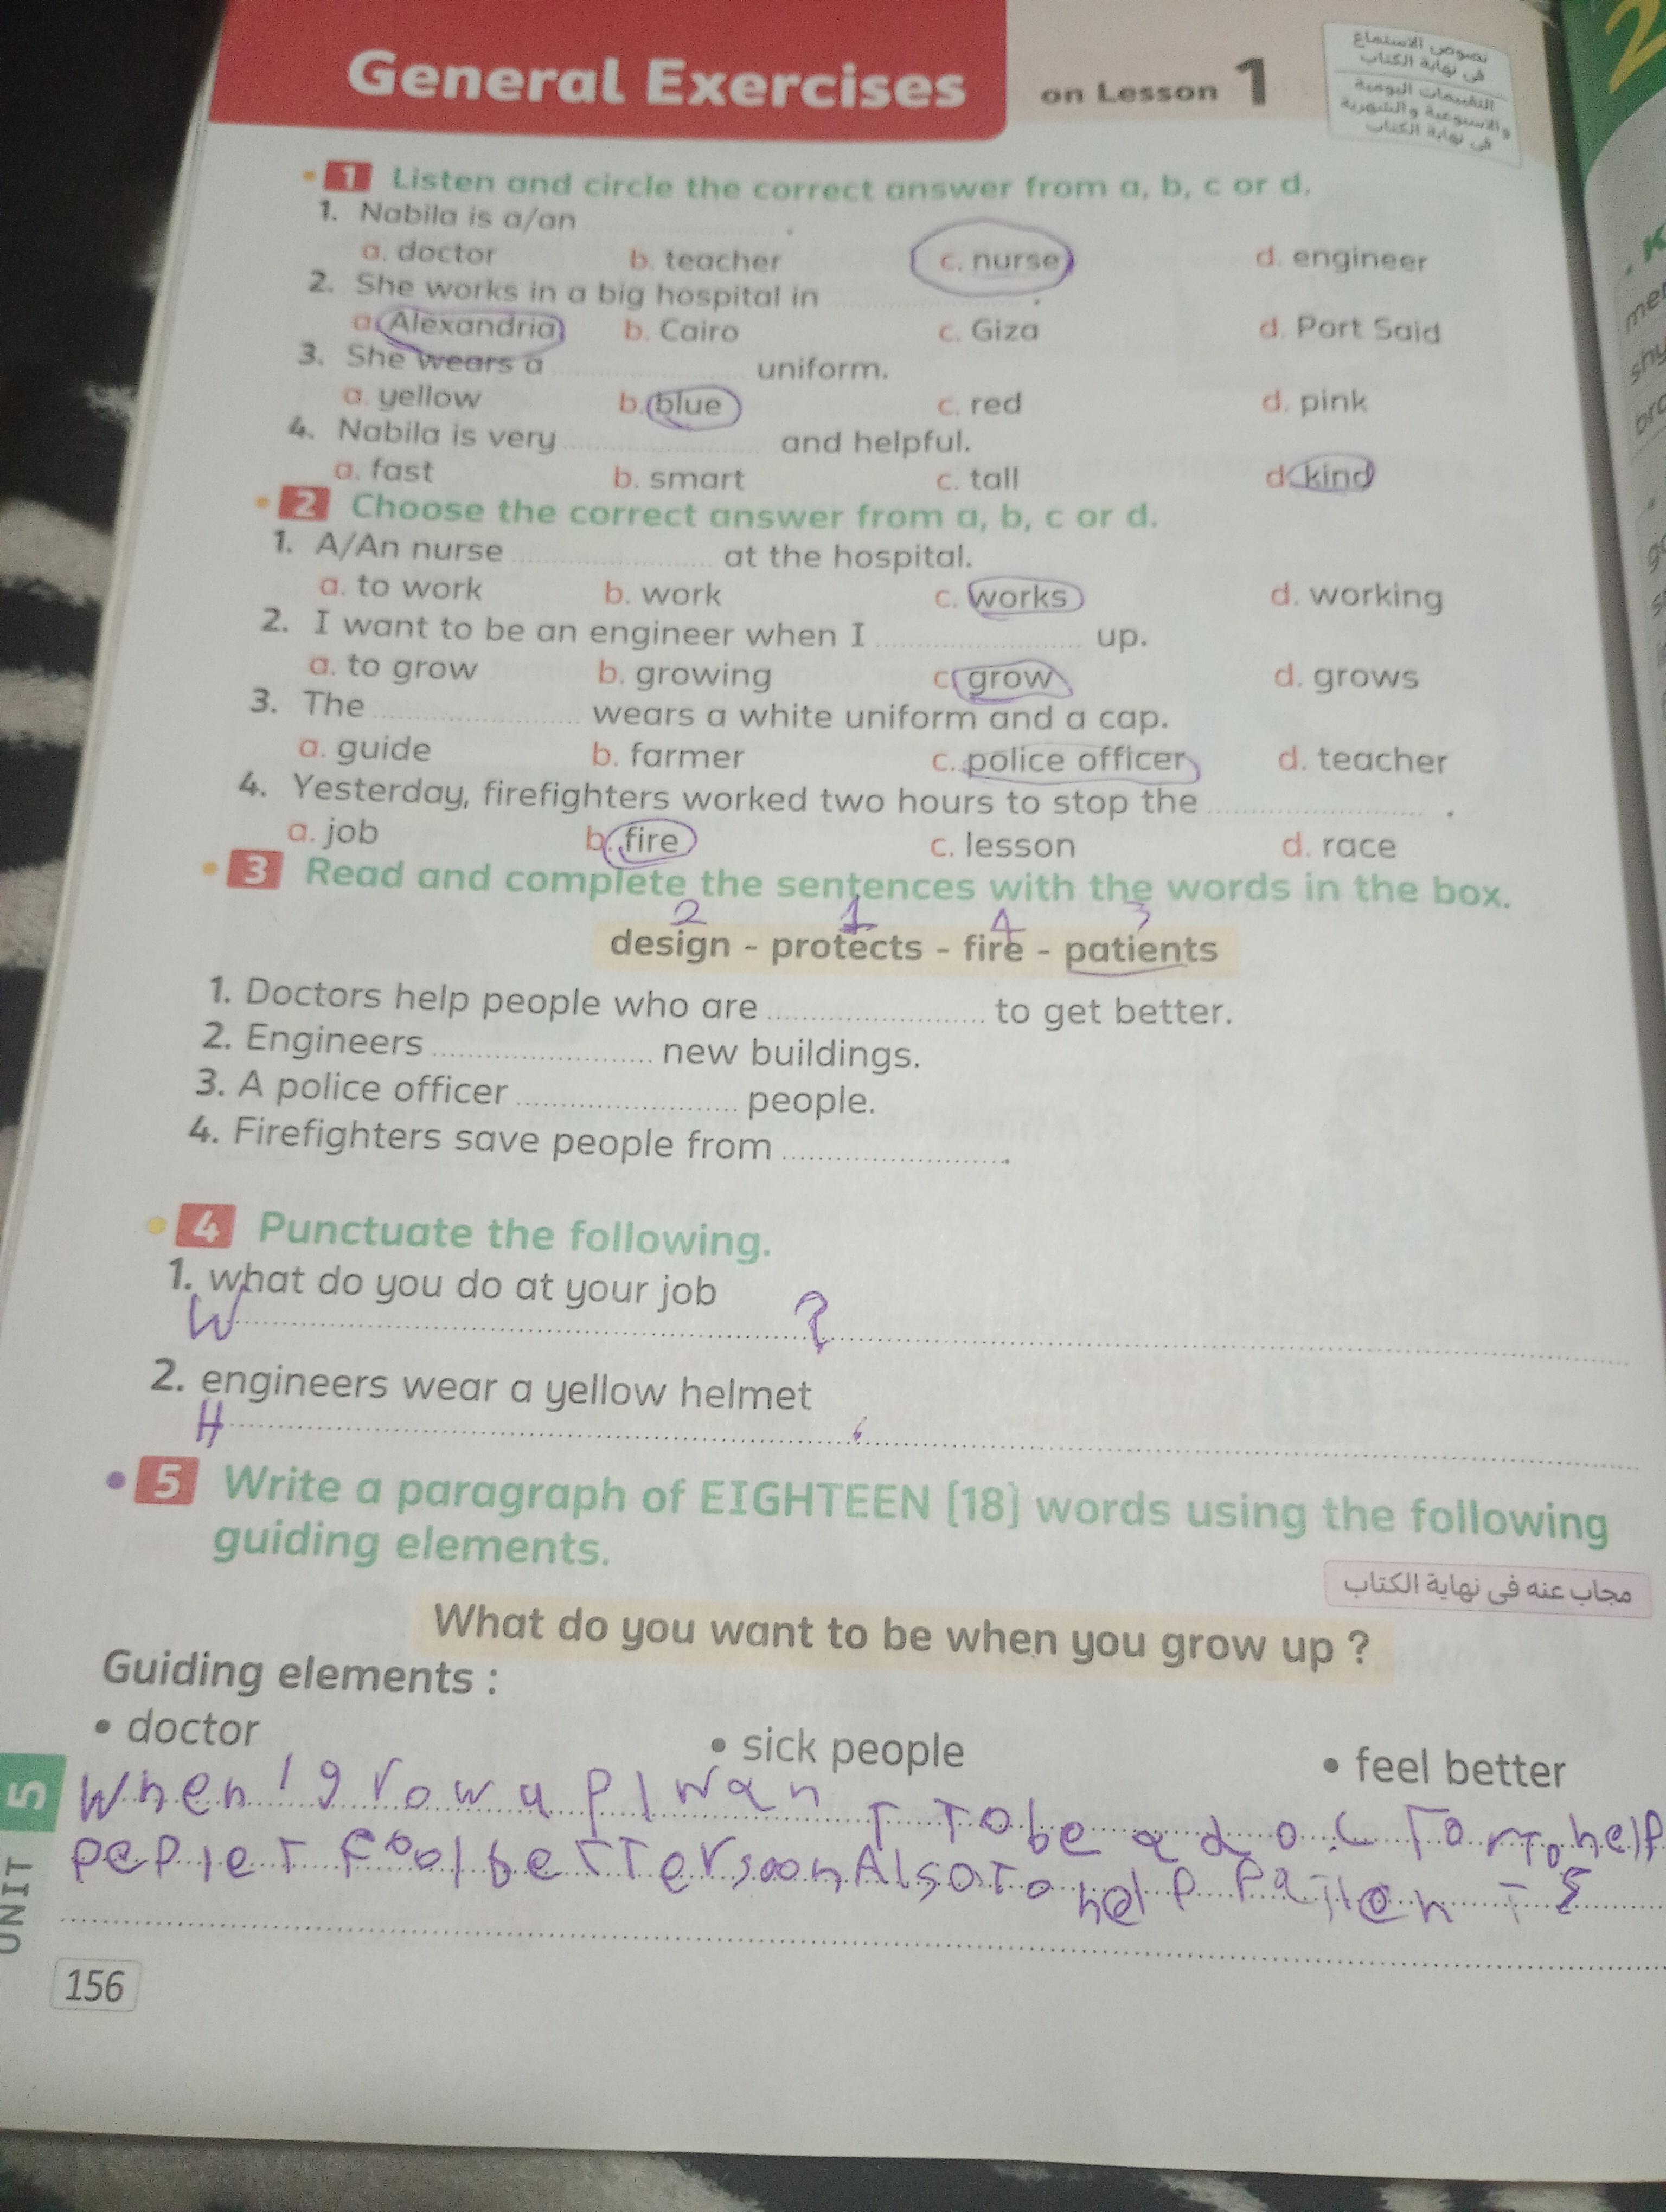 General Exercises on Lesson 1
نصوص الاستماع
فى نهاية الكتاب
التقييمات اليومية
والأسبوعية والشهرية
فى نهاية الكتاب
1 Listen and circle the correct answer from a, b, c or d.
1. Nabila is a/an .
a. doctor b. teacher c. nurse d. engineer
2. She works in a big hospital in .
a. Alexandria b. Cairo c. Giza d. Port Said
3. She wears a uniform.
a. yellow b. blue c. red d. pink
4. Nabila is very and helpful.
a. fast b. smart c. tall d. kind
2 Choose the correct answer from a, b, c or d.
1. A/An nurse at the hospital.
a. to work b. work c. works d. working
2. I want to be an engineer when I up.
a. to grow b. growing c. grow d. grows
3. The wears a white uniform and a cap.
a. guide b. farmer c. police officer d. teacher
4. Yesterday, firefighters worked two hours to stop the .
a. job b. fire c. lesson d. race
3 Read and complete the sentences with the words in the box.
2 1 4 3
design - protects - fire - patients
1. Doctors help people who are to get better.
2. Engineers new buildings.
3. A police officer people.
4. Firefighters save people from .
4 Punctuate the following.
1. what do you do at your job
W ?
2. engineers wear a yellow helmet
H
5 Write a paragraph of EIGHTEEN (18) words using the following
guiding elements.
مجاب عنه فى نهاية الكتاب
What do you want to be when you grow up ?
Guiding elements :
• doctor • sick people • feel better
When I grow up I want To be a docTor To help
beTTer soon Also To help
UNIT 5
156
2